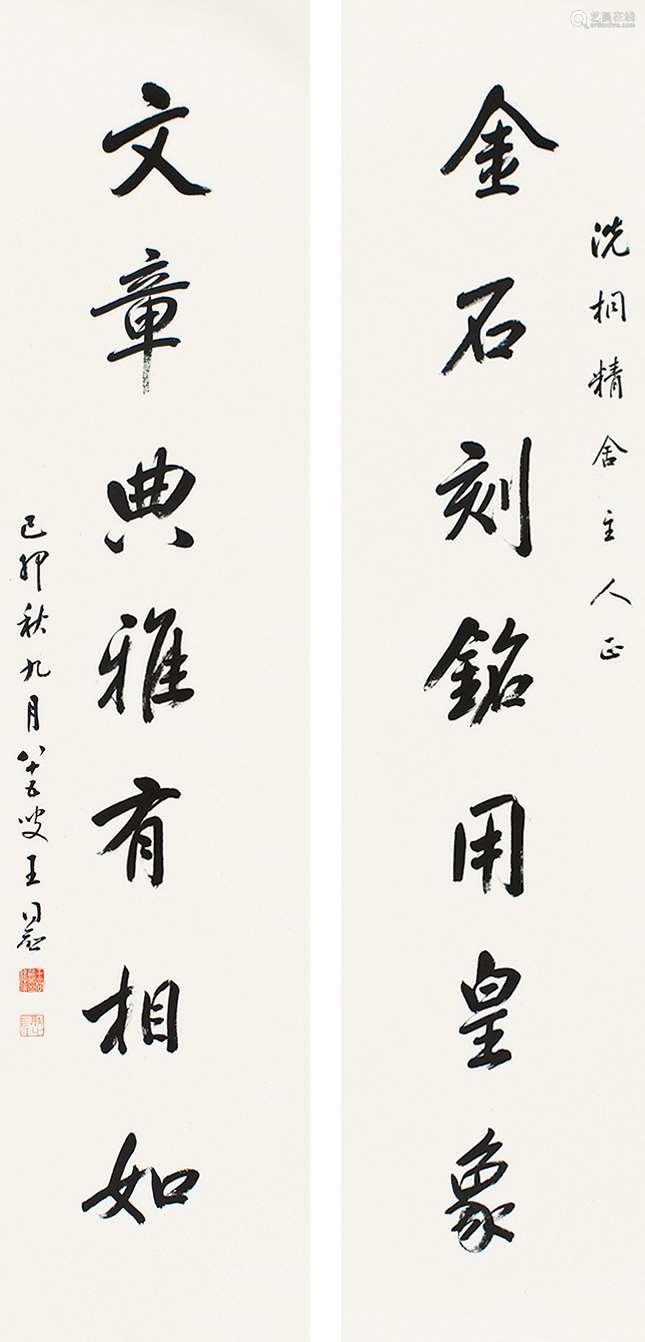 洗桐精舍主人正
金石刻銘用皇象
文章典雅有相如
己卯秋九月八十五叟王同愈
艺狐在线